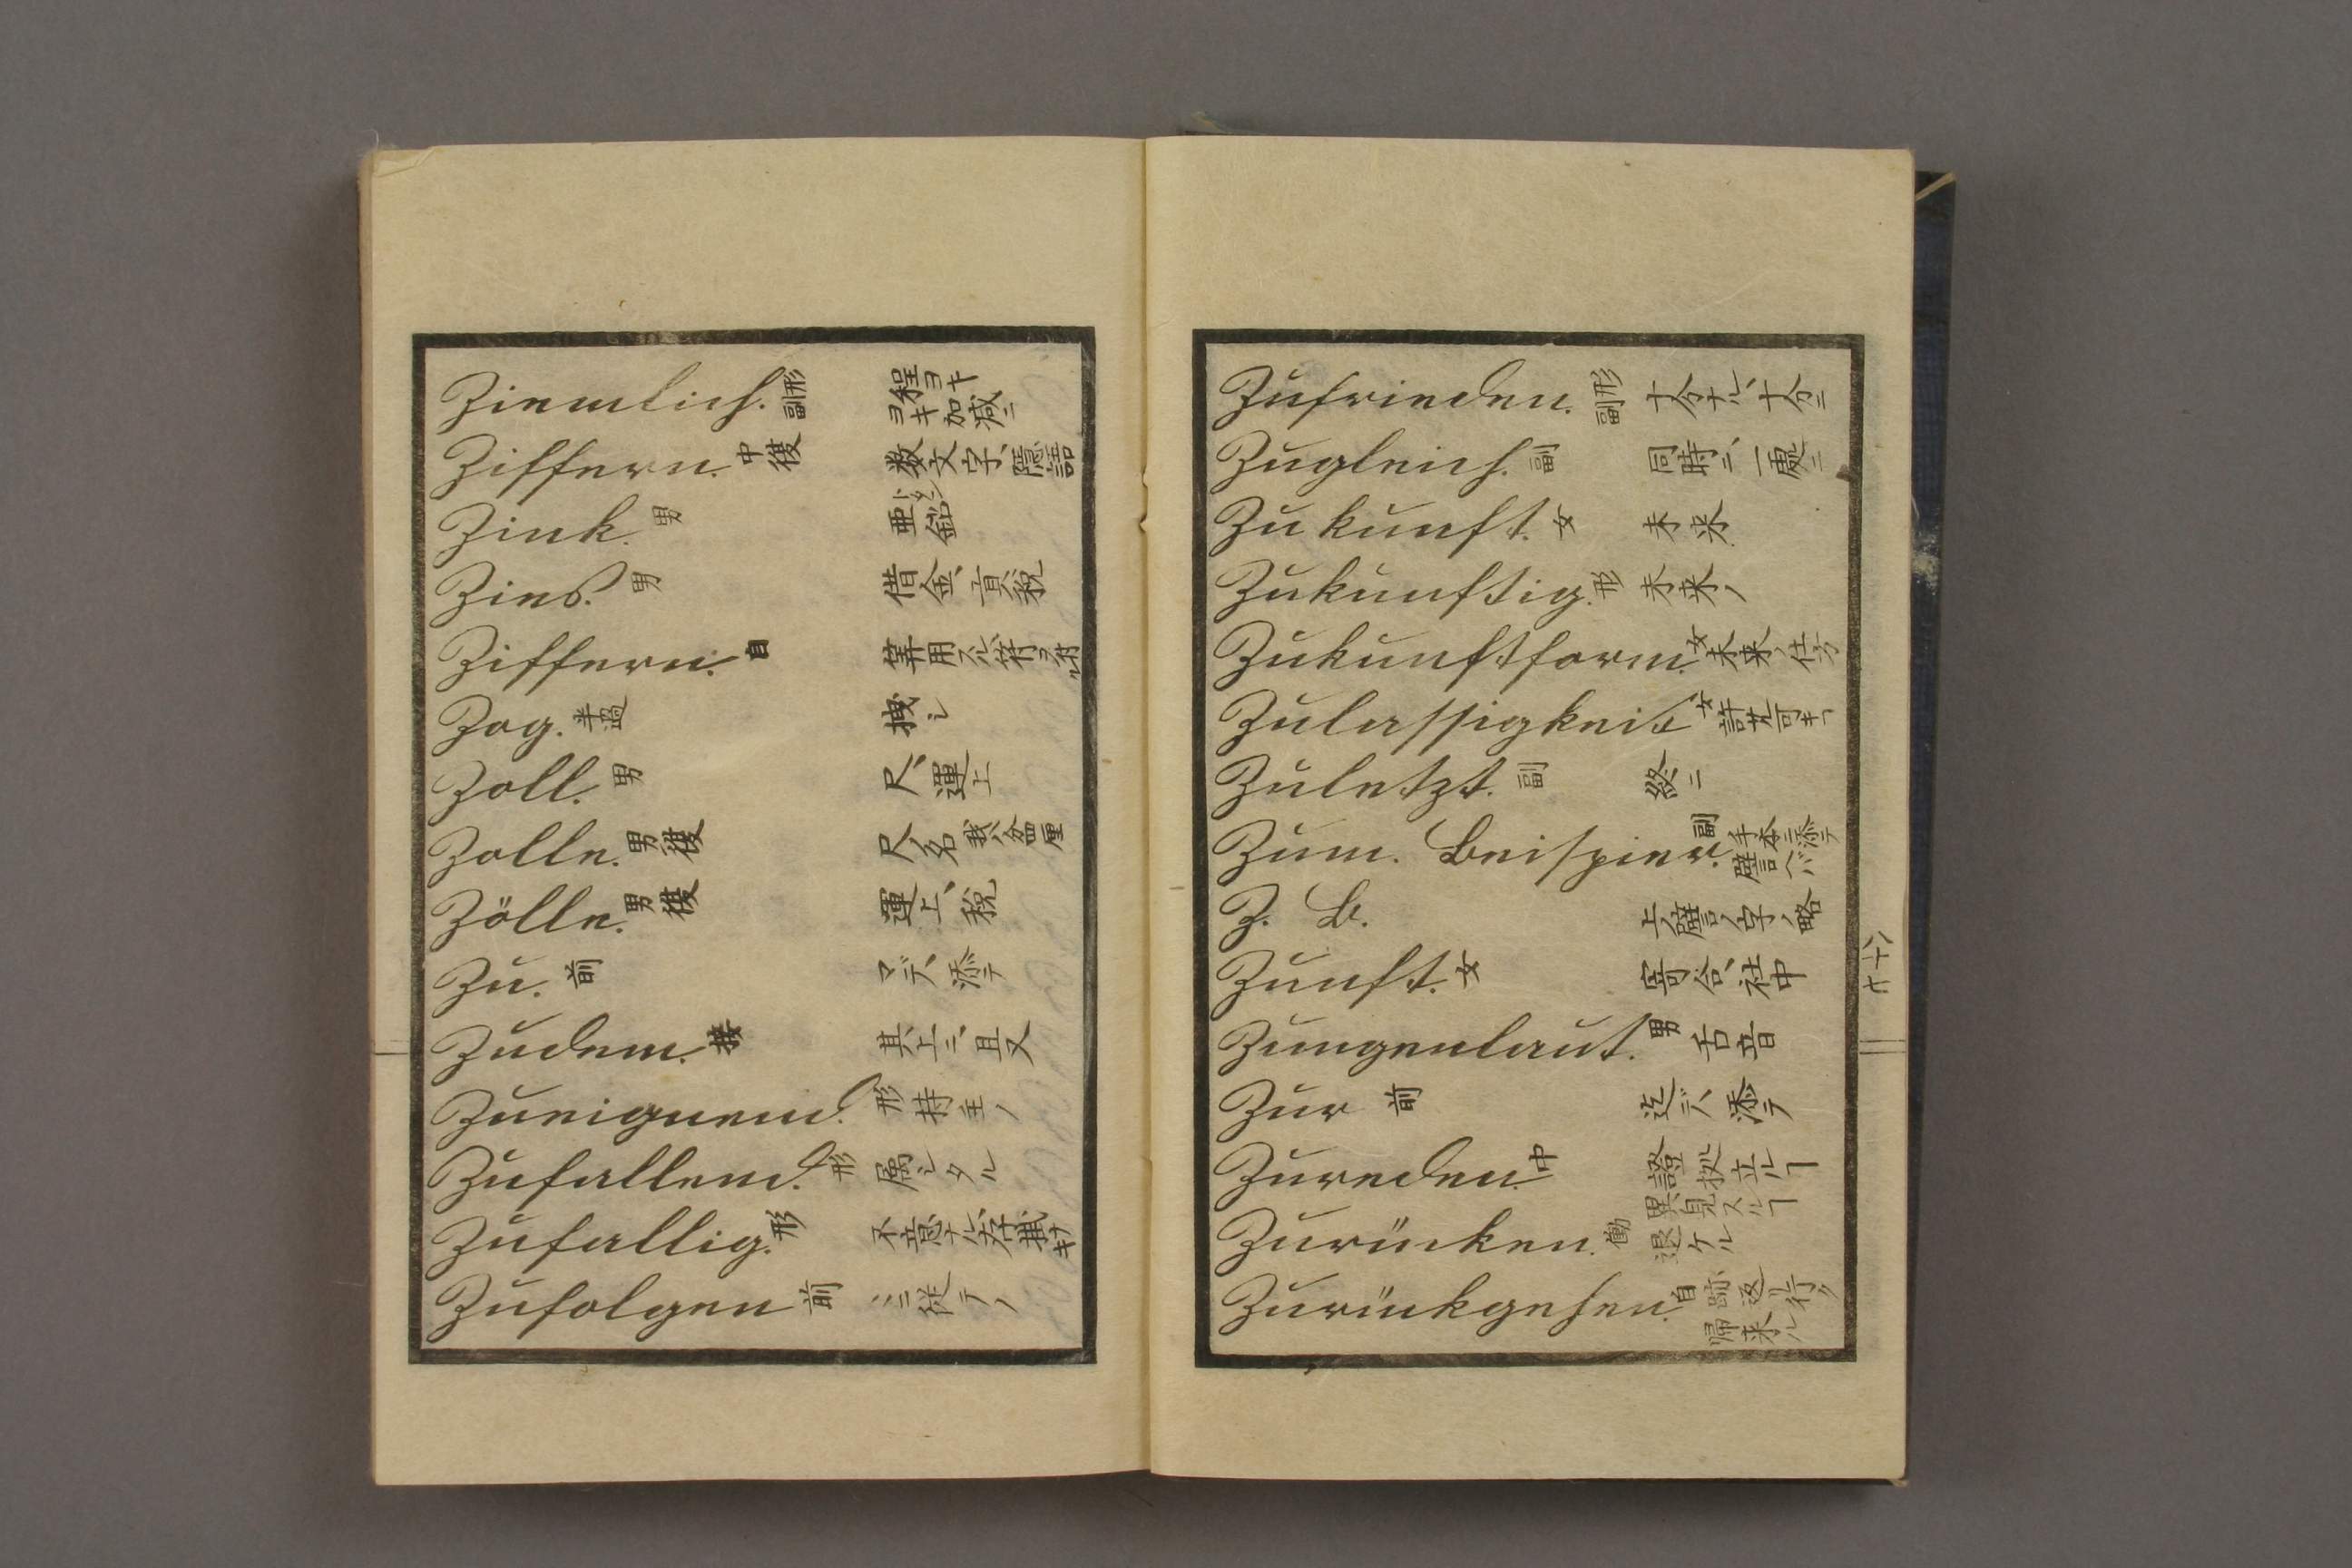 Ziemlich. 形副 程ヨキヨキ加減ニ
Ziffern. 中複 数文字、隠語
Zink. 男 亜鉛
Zins. 男 借金、貢税
Ziffern. 自 算用スル、符ヲ附ル
Zog. 半過 拽シ
Zoll. 男 尺、運上
Zolle. 男複 尺ノ名
Zölle. 男複 運上、税
Zu. 前 マデ、添テ
Zudem. 接 其上ニ、且又
Zueignend. 形 持主ノ
Zufallend. 形 属シタル
Zufallig. 形 不意ナル
Zufolgen 前 ニ従テノ
Zufrieden. 形副 十分ナル、十分ニ
Zugleich. 副 同時ニ、一處ニ
Zukunft. 女 未来
Zukunftig. 形 未来ノ
Zukunftform. 女 未来ノ仕方
Zulassigkeit 女 許可
Zuletzt. 副 終ニ
Zum. Beispier. 副 手本ニ添テ 譬ヘバ
Z. B. 上ノ譬ノ字ノ略
Zunft. 女 寄合、社中
Zungenlaut. 男 舌音
Zur 前 迄デ、添テ
Zureden. 中 證拠立ルヿ 異見スルヿ
Zurücken. 働 退ケル
Zurückgehen. 自 跡返リ行ク 帰来ル